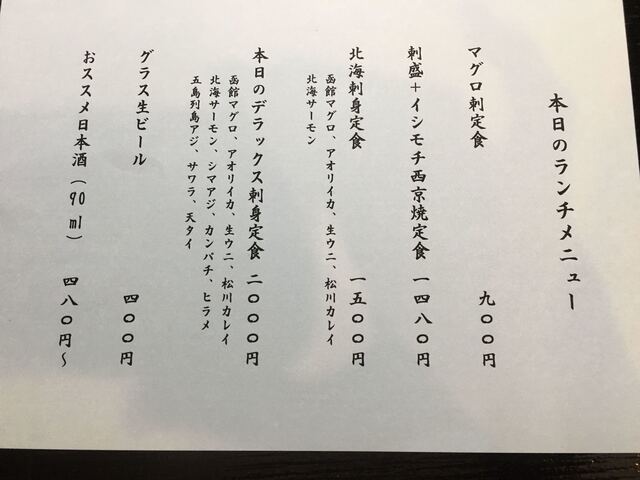 本日のランチメニュー
マグロ刺定食 九〇〇円
刺盛+イシモチ西京焼定食 一四八〇円
北海刺身定食 一五〇〇円
函館マグロ、アオリイカ、生ウニ、松川カレイ
北海サーモン
本日のデラックス刺身定食 二〇〇〇円
函館マグロ、アオリイカ、生ウニ、松川カレイ
北海サーモン、シマアジ、カンパチ、ヒラメ
五島列島アジ、サワラ、天タイ
グラス生ビール 四〇〇円
おススメ日本酒(90ml) 四八〇円～